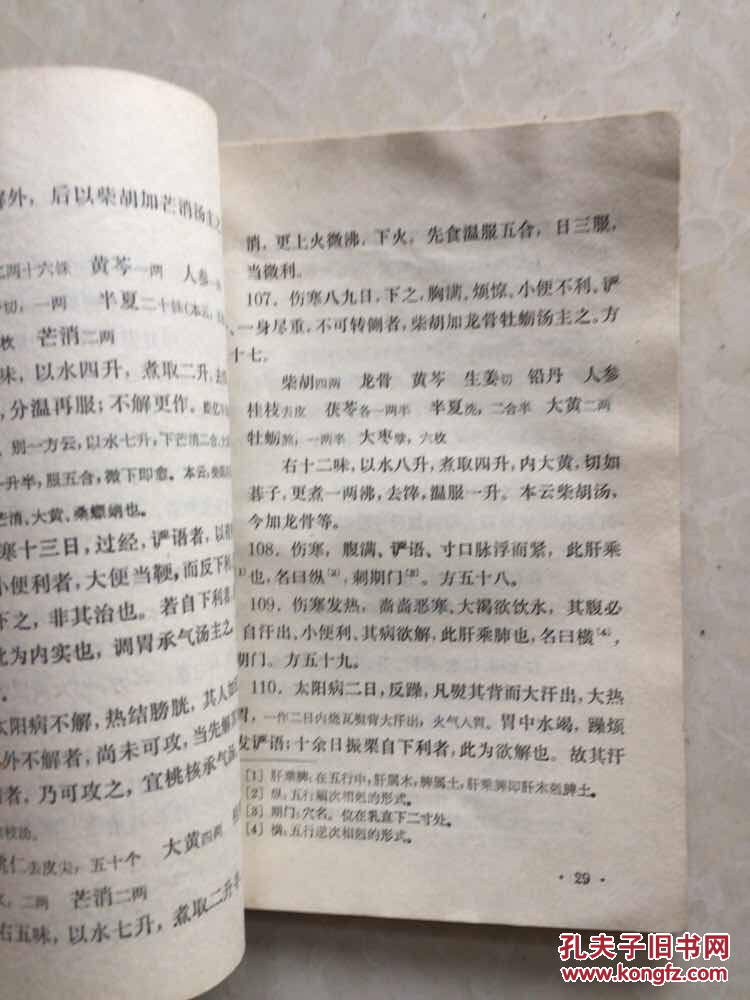 解外，后以柴胡加芒消汤主之
二两十六铢　黄芩一两　人参一
切，一两　半夏二十铢(本云，
枚　芒消二两
味，以水四升，煮取二升，去
，分温再服；不解更作。
别一方云，以水七升，下芒消二合，
升半，服五合，微下即愈。本云，柴胡
芒消、大黄、桑螵蛸也。
寒十三日，过经，谵语者，以
小便利者，大便当鞕，而反下利
下之，非其治也。若自下利者
此为内实也，调胃承气汤主之
。
太阳病不解，热结膀胱，其人如
外不解者，尚未可攻，当先解
者，乃可攻之，宜桃核承气汤
桂枝汤。
桃仁去皮尖，五十个　大黄四两
，二两　芒消二两
右五味，以水七升，煮取二升半
消，更上火微沸，下火，先食温服五合，日三服，
当微利。
107．伤寒八九日，下之，胸满、烦惊、小便不利、谵
一身尽重，不可转侧者，柴胡加龙骨牡蛎汤主之。方
十七。
柴胡四两　龙骨　黄芩　生姜切　铅丹　人参
桂枝去皮　茯苓各一两半　半夏洗，二合半　大黄二两
牡蛎熬，一两半　大枣擘，六枚
右十二味，以水八升，煮取四升，内大黄，切如
碁子，更煮一两沸，去滓，温服一升。本云柴胡汤，
今加龙骨等。
108．伤寒，腹满、谵语、寸口脉浮而紧，此肝乘
也，名曰纵〔2〕，刺期门〔3〕。方五十八。
109．伤寒发热，啬啬恶寒、大渴欲饮水，其腹必
自汗出、小便利、其病欲解，此肝乘肺也，名曰横〔4〕，
期门。方五十九。
110．太阳病二日，反躁，凡熨其背而大汗出，大热
胃，一作二日内烧瓦熨背大汗出，火气入胃。胃中水竭，躁烦
发谵语；十余日振栗自下利者，此为欲解也。故其汗
［1］肝乘脾：在五行中，肝属木，脾属土，肝乘脾即肝木剋脾土。
［2］纵：五行顺次相剋的形式。
［3］期门：穴名。位在乳直下二寸处。
［4］横：五行逆次相剋的形式。
· 29 ·
孔夫子旧书网
www.kongfz.com